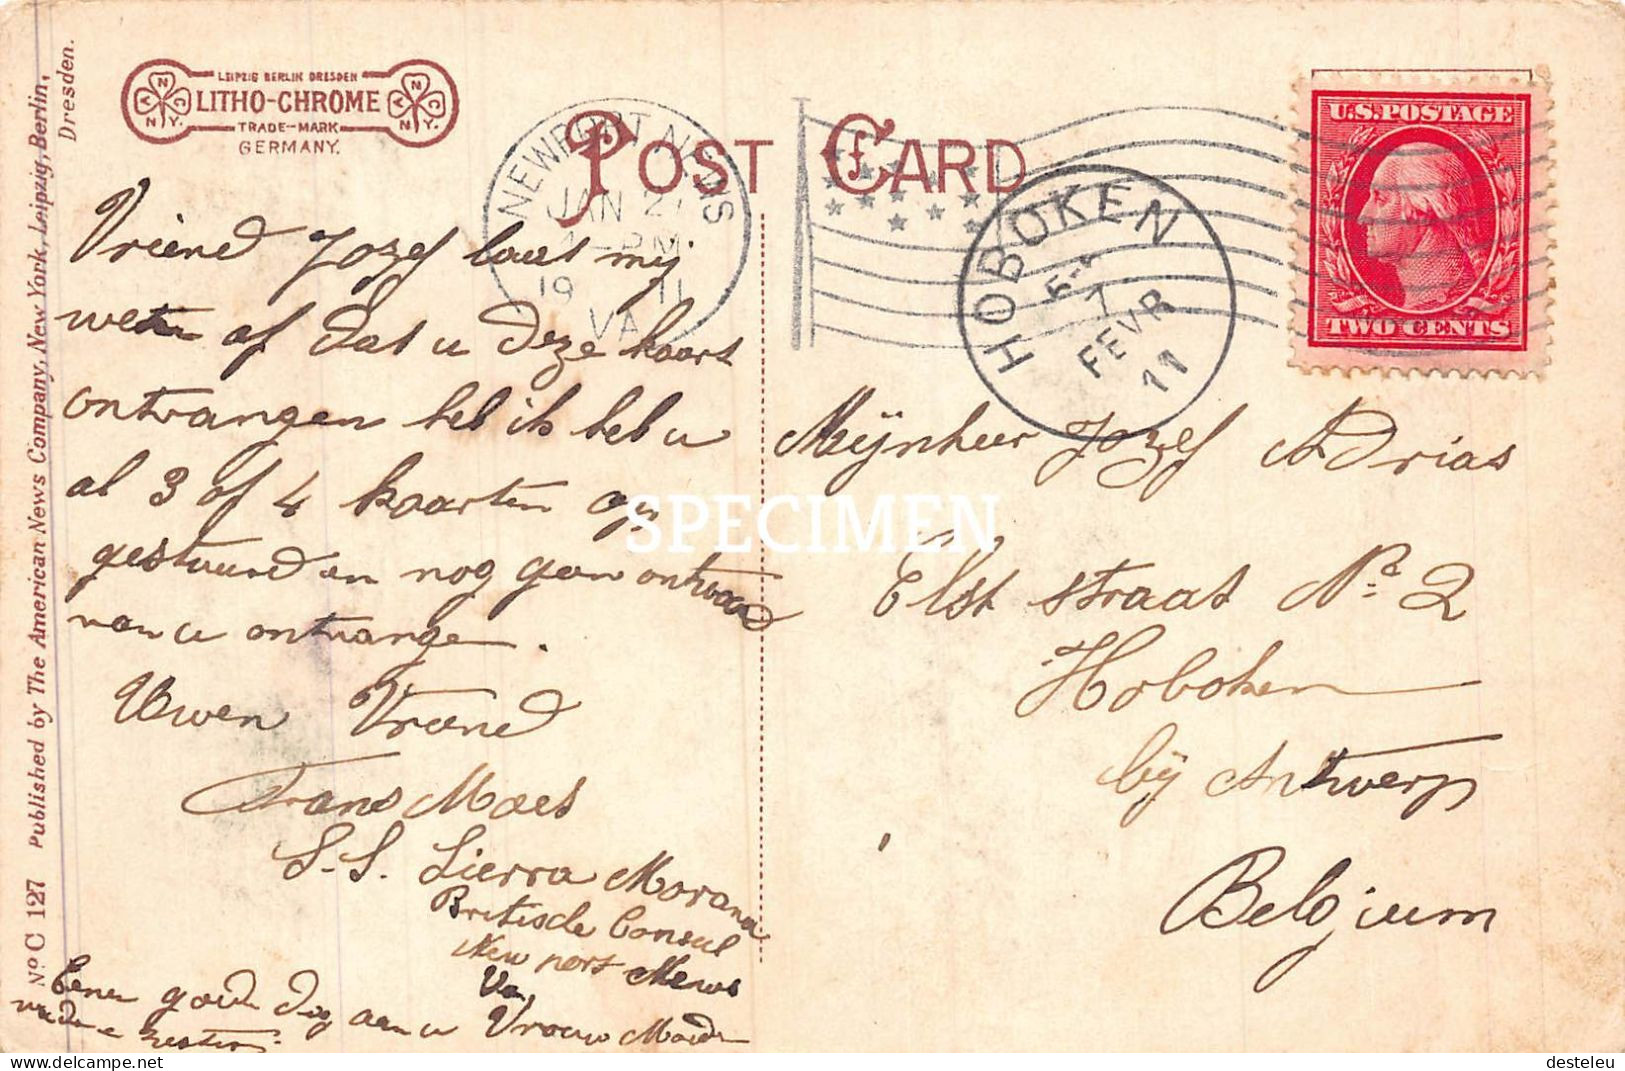 LEIPZIG BERLIN DRESDEN
LITHO-CHROME
TRADE-MARK
GERMANY.
POST CARD
NEWPORT NEWS
JAN 27
PM
19 11
VA
HOBOKEN
7
FEVR
11
U.S. POSTAGE
TWO CENTS
Vriend Jozef laat mij
weten of dat u deze kaart
ontvangen heb ik heb u
al 3 of 4 kaarten op
gestuurd en nog geen antwoord
van u ontvange.
Uwen Vriend
Frans Maes
S.S. Sierra Morana
Britische Consul
New port News
Va,
Eenen goeden dag aan u Vrouw Moeder
Mijnheer Jozef Adrias
Elst straat No. 2
Hoboken
bij Antwerp
Belgium
No C 127 Published by The American News Company, New York, Leipzig, Berlin,
Dresden.
SPECIMEN
desteleu